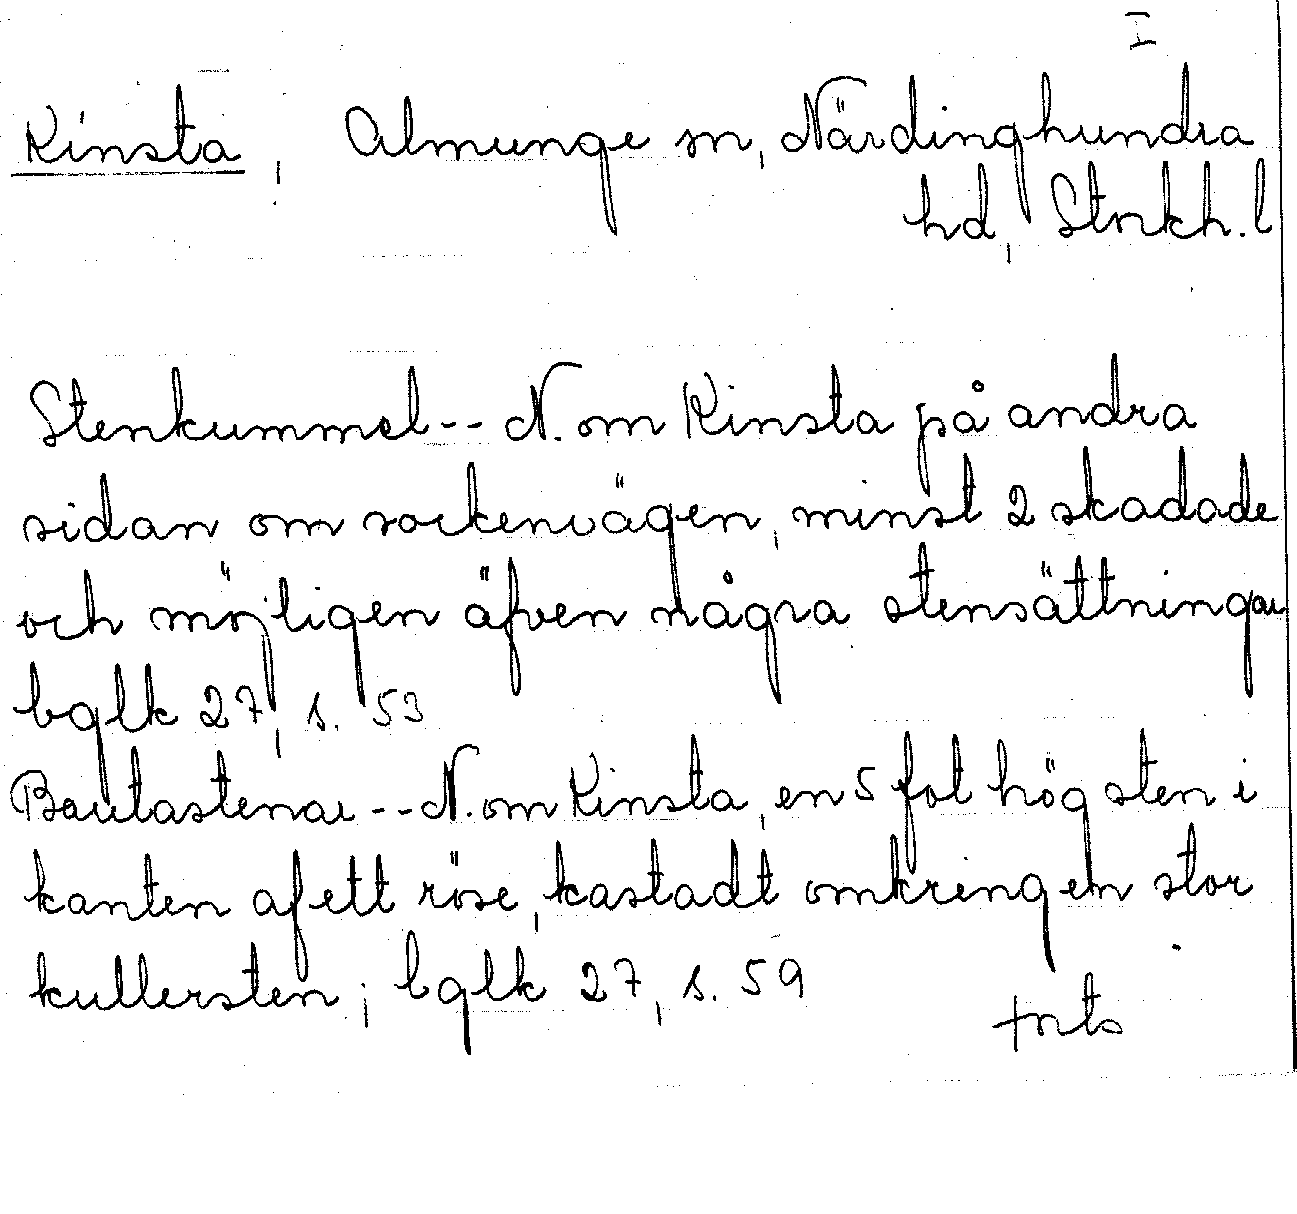 I
Kinsta, Almunge sn, Närdinghundra
hd, Stockh.l
Stenkummel -- N. om Kinsta på andra
sidan om sockenvägen, minst 2 skadade
och möjligen äfven några stensättningar
bglk 27, s. 53
Bautastenar -- N. om Kinsta, en 5 fot hög sten i
kanten af ett röse, kastadt omkring en stor
kullersten; bglk 27, s. 59
forts